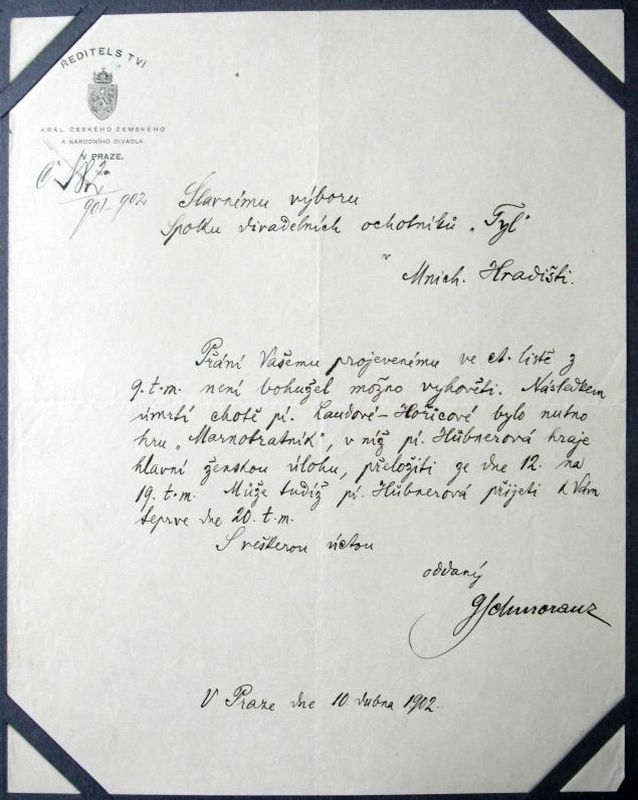 ŘEDITELSTVÍ
KRÁL. ČESKÉHO ZEMSKÉHO
A NÁRODNÍHO DIVADLA
V PRAZE.
901-902
Slavnému výboru
Spolku divadelních ochotníků „Tyl"
v
Mnich. Hradišti.
Přání Vašemu projevenému ve ct. listě z
9. t. m. není bohužel možno vyhověti. Následkem
úmrtí chotě pí. Laudové-Hořicové bylo nutno
hru „Marnotratník", v níž pí. Hübnerová hraje
hlavní ženskou úlohu, přeložiti ze dne 12. na
19. t. m. Může tudíž pí. Hübnerová přijeti k Vám
teprve dne 20. t. m.
S veškerou úctou
oddaný
GSchmoranz
V Praze dne 10. dubna 1902.